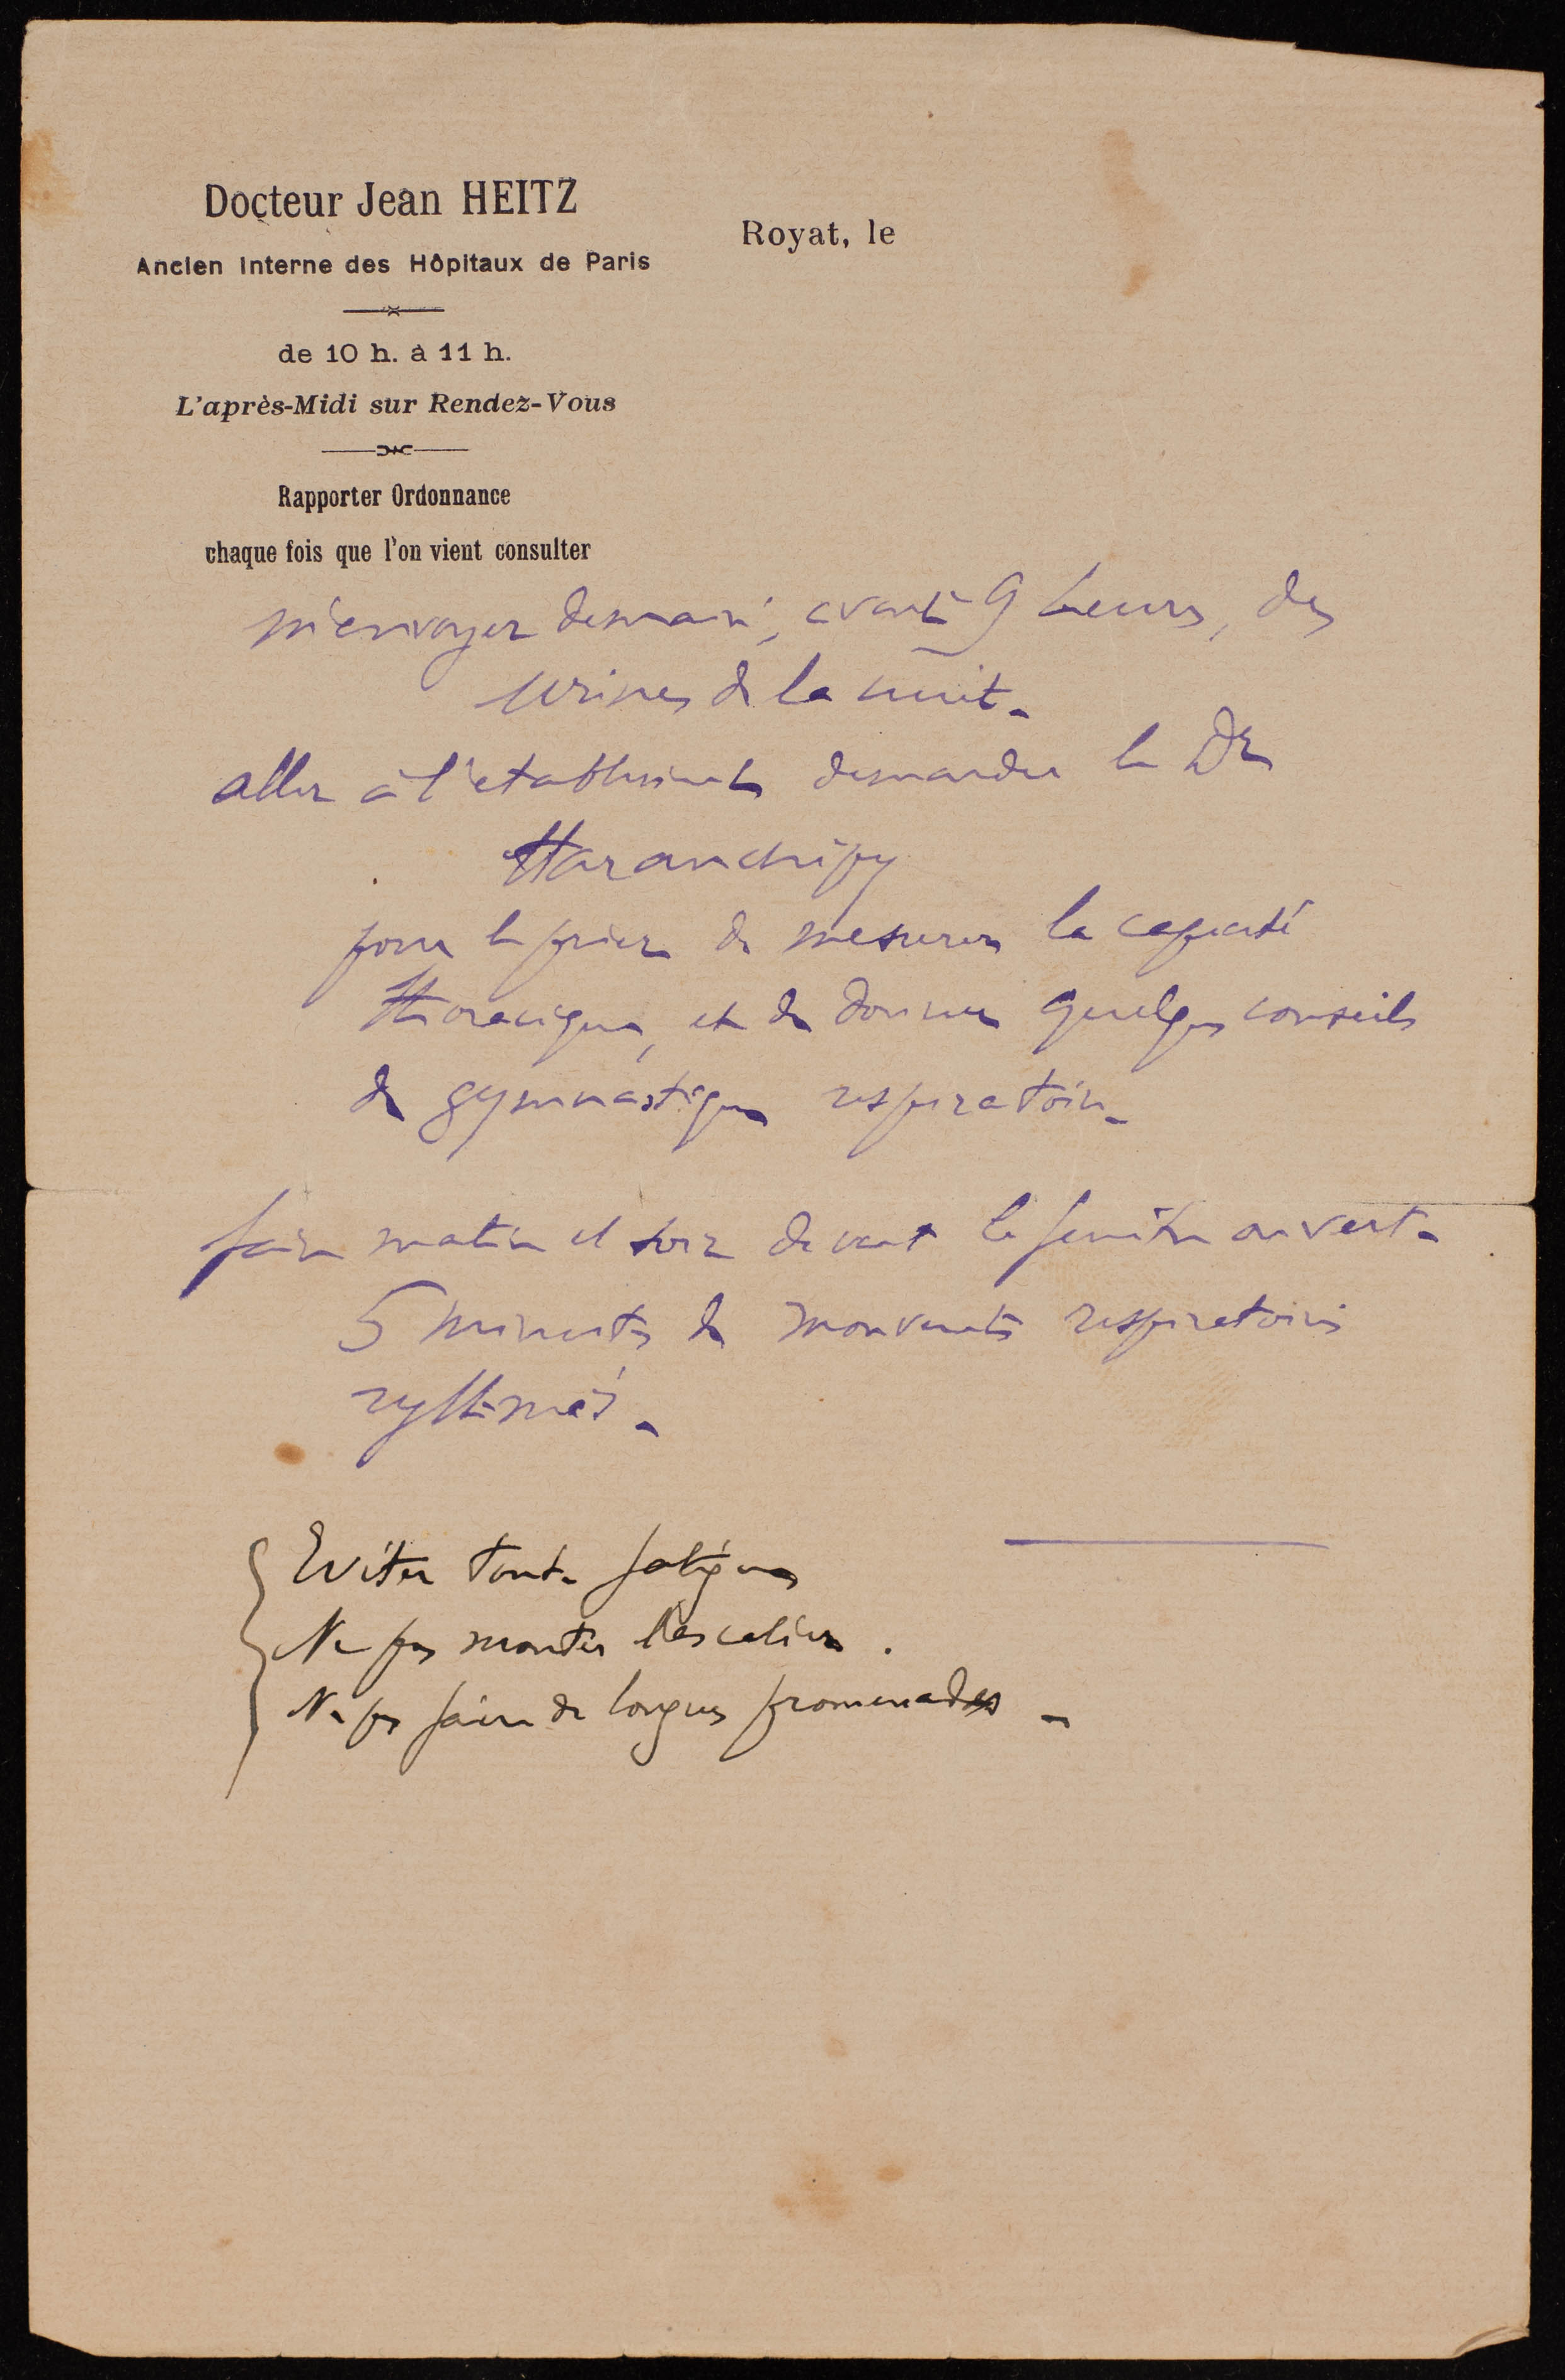 Docteur Jean HEITZ
Ancien Interne des Hôpitaux de Paris
de 10 h. à 11 h.
L'après-Midi sur Rendez-Vous
Rapporter Ordonnance
chaque fois que l'on vient consulter
Royat, le
m'envoyer demain, avant 9 heures, des
urines de la nuit.
aller à l'etablissement demander le Dr
Haranchipy
pour le prier de mesurer la capacité
thoracique, et de donner quelques conseils
de gymnastique respiratoire.
faire matin et soir devant la fenêtre ouverte
5 minutes de mouvements respiratoires
rythmés.
Eviter toute fatigue
Ne pas monter l'escalier.
Ne pas faire de longues promenades.